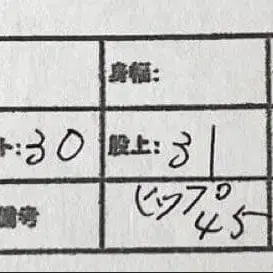 身幅:
ト:30 股上:31
備考 ヒップ
45